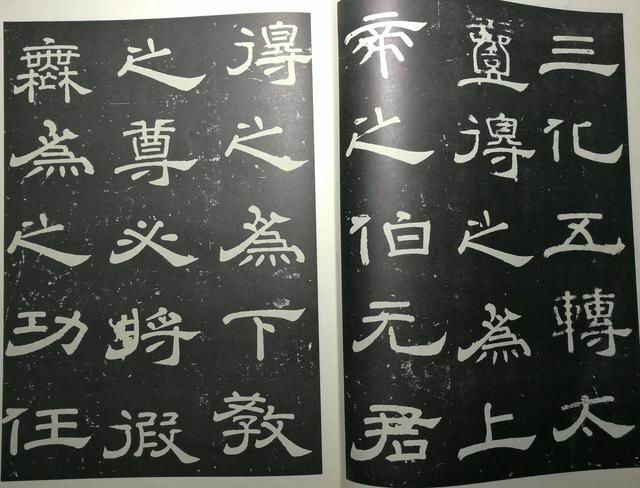 三化五轉太
壹得之為上
帝之伯元君
得之為下教
之尊必將假
無為之功任